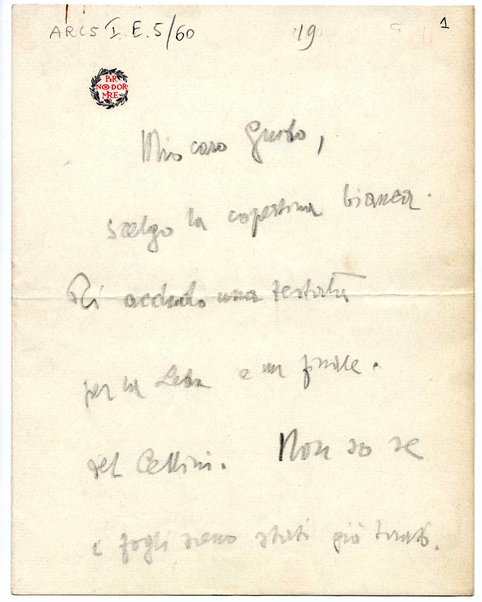 ARCS I. E. 5/60
19
1
PER
NON DOR
MIRE
Mio caro Guido,
scelgo la copertina bianca.
Ti accludo una testata
per la Leda e un finale.
del Cellini. Non so se
i fogli sieno stati già tirati.